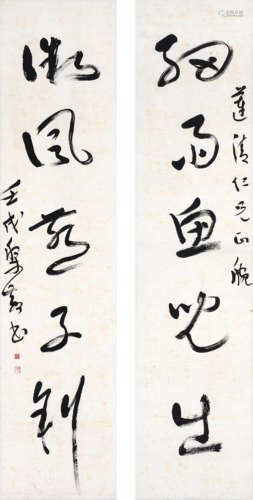 細雨魚兒出
蓮清仁兄正腕
微風燕子斜
壬戌 書